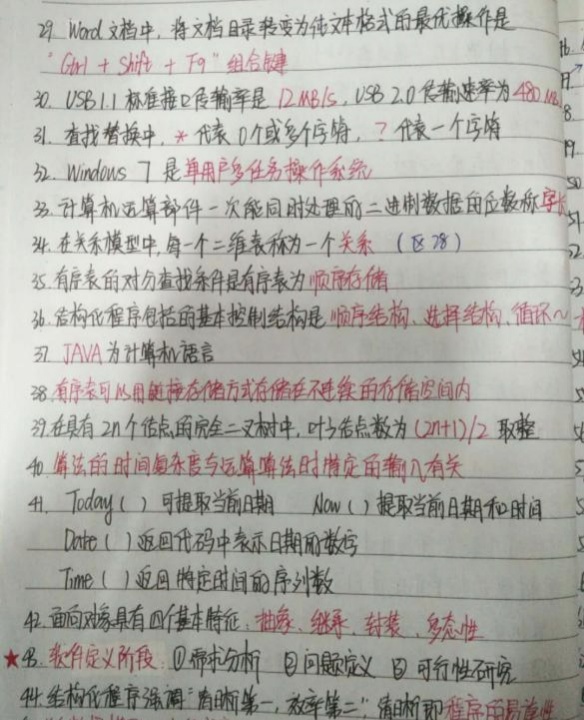 29. Word文档中，将文档目录转变为纯文本格式的最优操作是
"Ctrl + Shift + F9"组合键
30. USB1.1标准接口传输率是12MB/s，USB 2.0传输速率为480MB
31. 查找替换中，*代表0个或多个字符，？代表一个字符
32. Windows 7 是单用户多任务操作系统
33. 计算机运算部件一次能同时处理的二进制数据的位数称字长
34. 在关系模型中，每一个二维表称为一个关系 （区28）
35. 有序表的对分查找条件是有序表为顺序存储
36. 结构化程序包括的基本控制结构是顺序结构、选择结构、循环～
37. JAVA为计算机语言
38. 有序表可以用链接存储方式存储在不连续的存储空间内
39. 在具有2n个结点的完全二叉树中，叶子结点数为(2n+1)/2 取整
40. 算法的时间复杂度与运算算法时特定的输入有关
41. Today( ) 可提取当前日期 Now( ) 提取当前日期和时间
Date( ) 返回代码中表示日期的数字
Time( ) 返回特定时间的序列数
42. 面向对象具有四个基本特征：抽象、继承、封装、多态性
★43. 软件定义阶段：①需求分析 ②问题定义 ③可行性研究
44. 结构化程序强调"清晰第一，效率第二"，清晰即程序的易读性